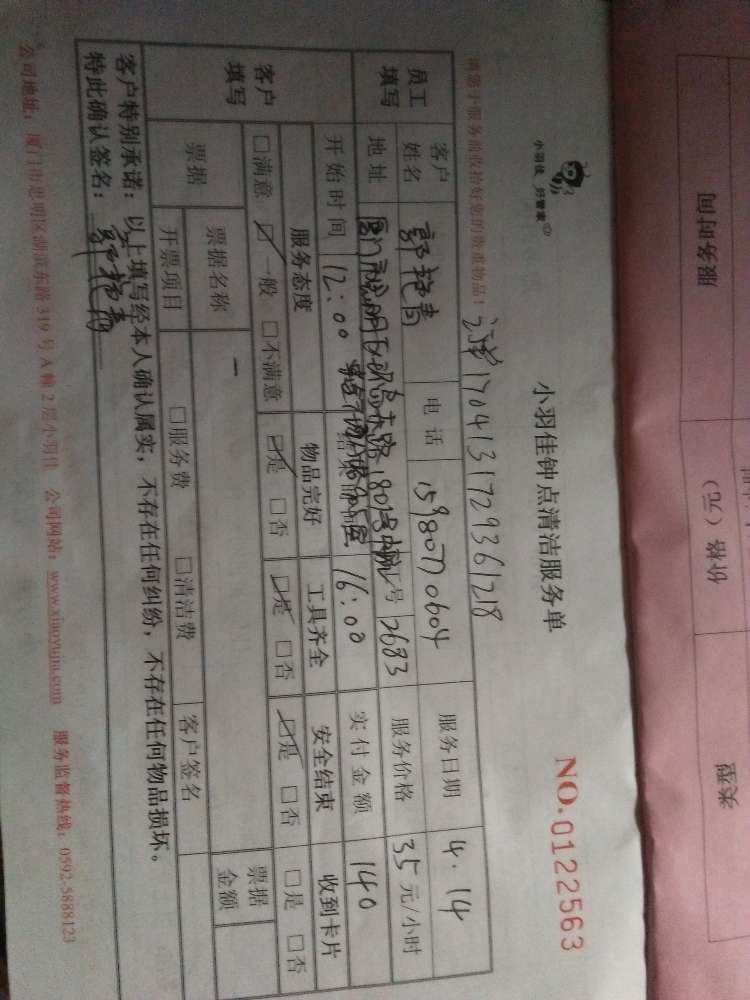 小羽佳 好管家
小羽佳钟点清洁服务单
NO.0122563
请您于服务前收拾好您的贵重物品!
1704131729361218
员工填写
客户姓名 郭艳青 电话 15980770604 服务日期 4.14
地址 厦门市思明区环岛东路1801号中航 工号 2683 服务价格 35 元/小时
开始时间 12:00 16:00 实付金额 140
客户填写
服务态度 物品完好 工具齐全 安全结束 收到卡片
□满意 ☑一般 □不满意 ☑是 □否 ☑是 □否 ☑是 □否 □是 □否
票据 票据名称 一 票据金额
开票项目 □服务费 □清洁费 客户签名
客户特别承诺:以上填写经本人确认属实,不存在任何纠纷,不存在任何物品损坏。
特此确认签名:郭艳青
公司地址:厦门市思明区湖滨东路319号A幢2层小羽佳 公司网站:www.xiaoyujia.com 服务监督热线:0592-5888123
服务时间 价格(元) 类型